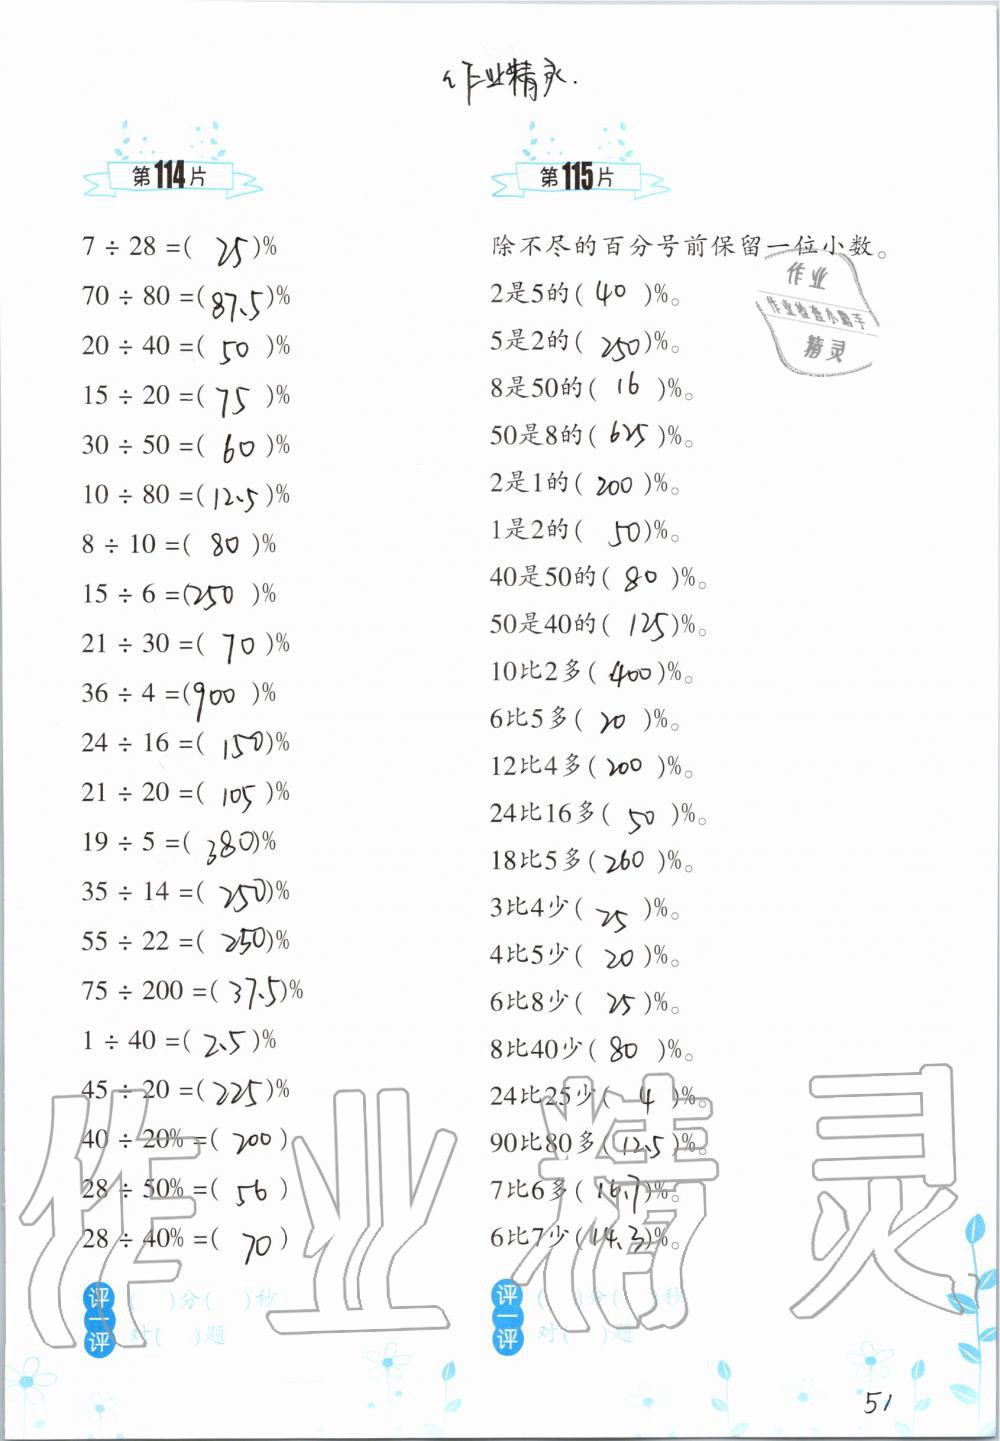 作业精灵.
第114片
7 ÷ 28 =( 25 )%
70 ÷ 80 =( 87.5 )%
20 ÷ 40 =( 50 )%
15 ÷ 20 =( 75 )%
30 ÷ 50 =( 60 )%
10 ÷ 80 =( 12.5 )%
8 ÷ 10 =( 80 )%
15 ÷ 6 =( 250 )%
21 ÷ 30 =( 70 )%
36 ÷ 4 =( 900 )%
24 ÷ 16 =( 150 )%
21 ÷ 20 =( 105 )%
19 ÷ 5 =( 380 )%
35 ÷ 14 =( 250 )%
55 ÷ 22 =( 250 )%
75 ÷ 200 =( 37.5 )%
1 ÷ 40 =( 2.5 )%
45 ÷ 20 =( 225 )%
40 ÷ 20% =( 200 )
28 ÷ 50% =( 56 )
28 ÷ 40% =( 70 )
评一评
( )分( )秒
对( )题
第115片
除不尽的百分号前保留一位小数。
2是5的( 40 )%。
5是2的( 250 )%。
8是50的( 16 )%。
50是8的( 625 )%。
2是1的( 200 )%。
1是2的( 50 )%。
40是50的( 80 )%。
50是40的( 125 )%。
10比2多( 400 )%。
6比5多( 20 )%。
12比4多( 200 )%。
24比16多( 50 )%。
18比5多( 260 )%。
3比4少( 25 )%。
4比5少( 20 )%。
6比8少( 25 )%。
8比40少( 80 )%。
24比25少( 4 )%。
90比80多( 12.5 )%。
7比6多( 16.7 )%。
6比7少( 14.3 )%。
评一评
( )分( )秒
对( )题
作业
作业检查小助手
精灵
作业精灵
51